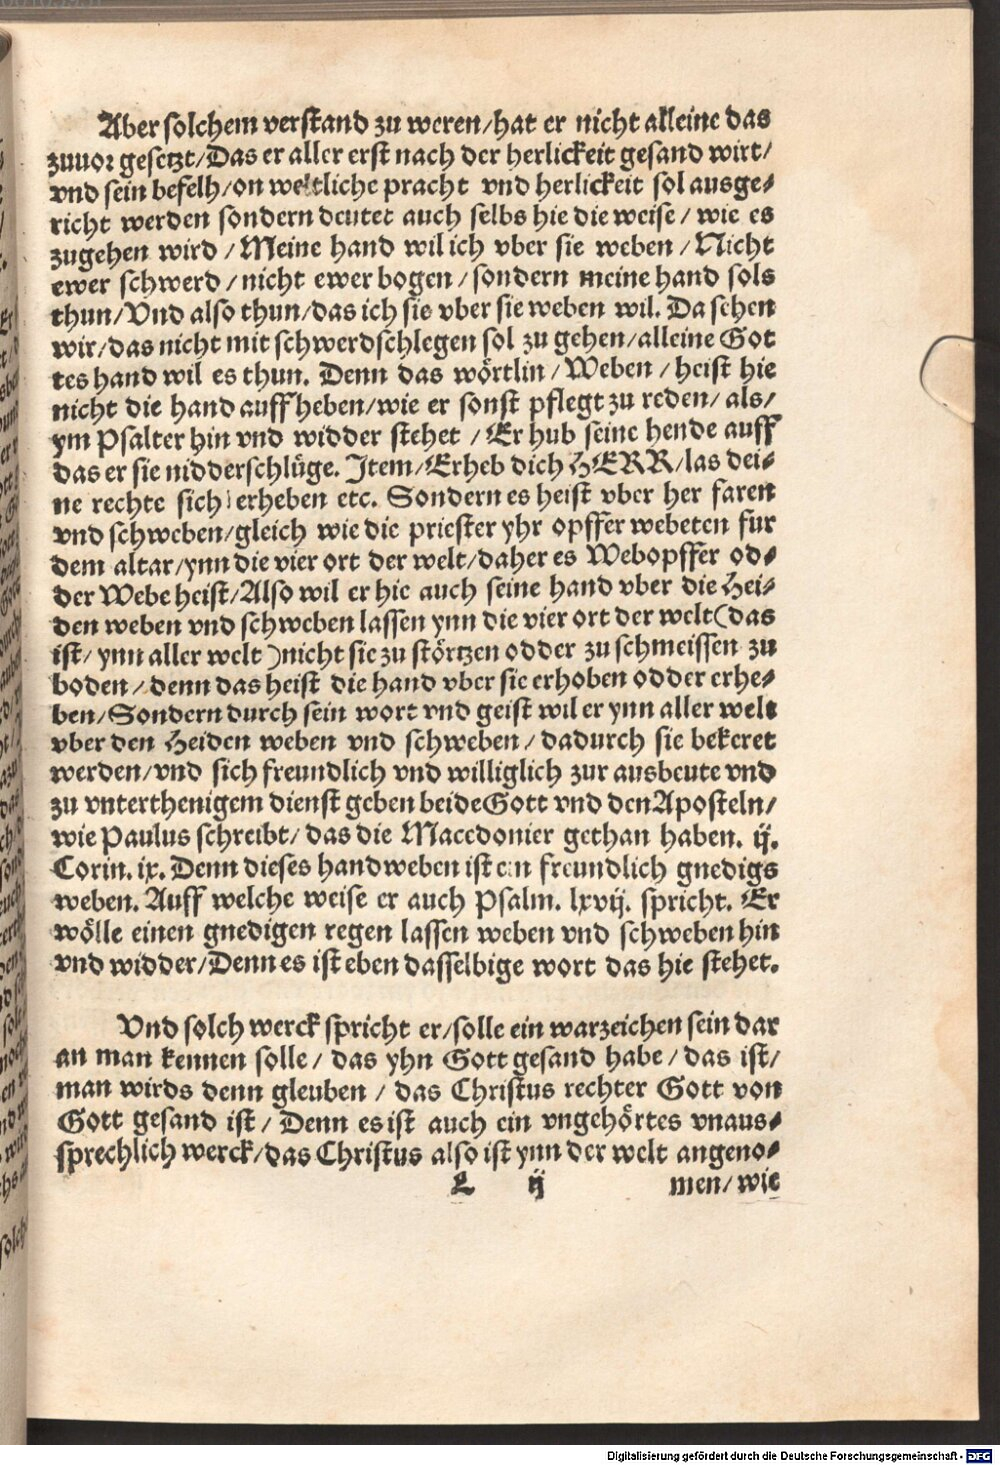 Aber solchem verstand zu weren/hat er nicht alleine das
zuuor gesetzt/Das er aller erst nach der herlickeit gesand wirt/
vnd sein befelh/on weltliche pracht vnd herlickeit sol ausge-
richt werden sondern deutet auch selbs hie die weise/wie es
zugehen wird/Meine hand wil ich vber sie weben/Nicht
ewer schwerd/nicht ewer bogen/sondern meine hand sols
thun/Vnd also thun/das ich sie vber sie weben wil. Da sehen
wir/das nicht mit schwerdschlegen sol zu gehen/alleine Got
tes hand wil es thun. Denn das wörtlin/Weben/heist hie
nicht die hand auffheben/wie er sonst pflegt zu reden/als/
ym Psalter hin vnd widder stehet/Er hub seine hende auff
das er sie nidderschlüge. Item/Erheb dich HERR/las dei-
ne rechte sich erheben etc. Sondern es heist vber her faren
vnd schweben/gleich wie die priester yhr opffer webeten fur
dem altar/ynn die vier ort der welt/daher es Webopffer od-
der Webe heist/Also wil er hie auch seine hand vber die Hei-
den weben vnd schweben lassen ynn die vier ort der welt(das
ist/ynn aller welt)nicht sie zu störtzen odder zu schmeissen zu
boden/denn das heist die hand vber sie erhoben odder erhe-
ben/Sondern durch sein wort vnd geist wil er ynn aller welt
vber den Heiden weben vnd schweben/dadurch sie bekeret
werden/vnd sich freundlich vnd williglich zur ausbeute vnd
zu vnterthenigem dienst geben beide Gott vnd den Aposteln/
wie Paulus schreibt/das die Macedonier gethan haben. ij.
Corin. ix. Denn dieses handweben ist ein freundlich gnedigs
weben. Auff welche weise er auch Psalm. lxvij. spricht. Er
wölle einen gnedigen regen lassen weben vnd schweben hin
vnd widder/Denn es ist eben dasselbige wort das hie stehet.
Vnd solch werck spricht er/solle ein warzeichen sein dar
an man kennen solle/das yhn Gott gesand habe/das ist/
man wirds denn gleuben/das Christus rechter Gott von
Gott gesand ist/Denn es ist auch ein vngehörtes vnaus-
sprechlich werck/das Christus also ist ynn der welt angeno-
L ij men/wie
Digitalisierung gefördert durch die Deutsche Forschungsgemeinschaft - DFG